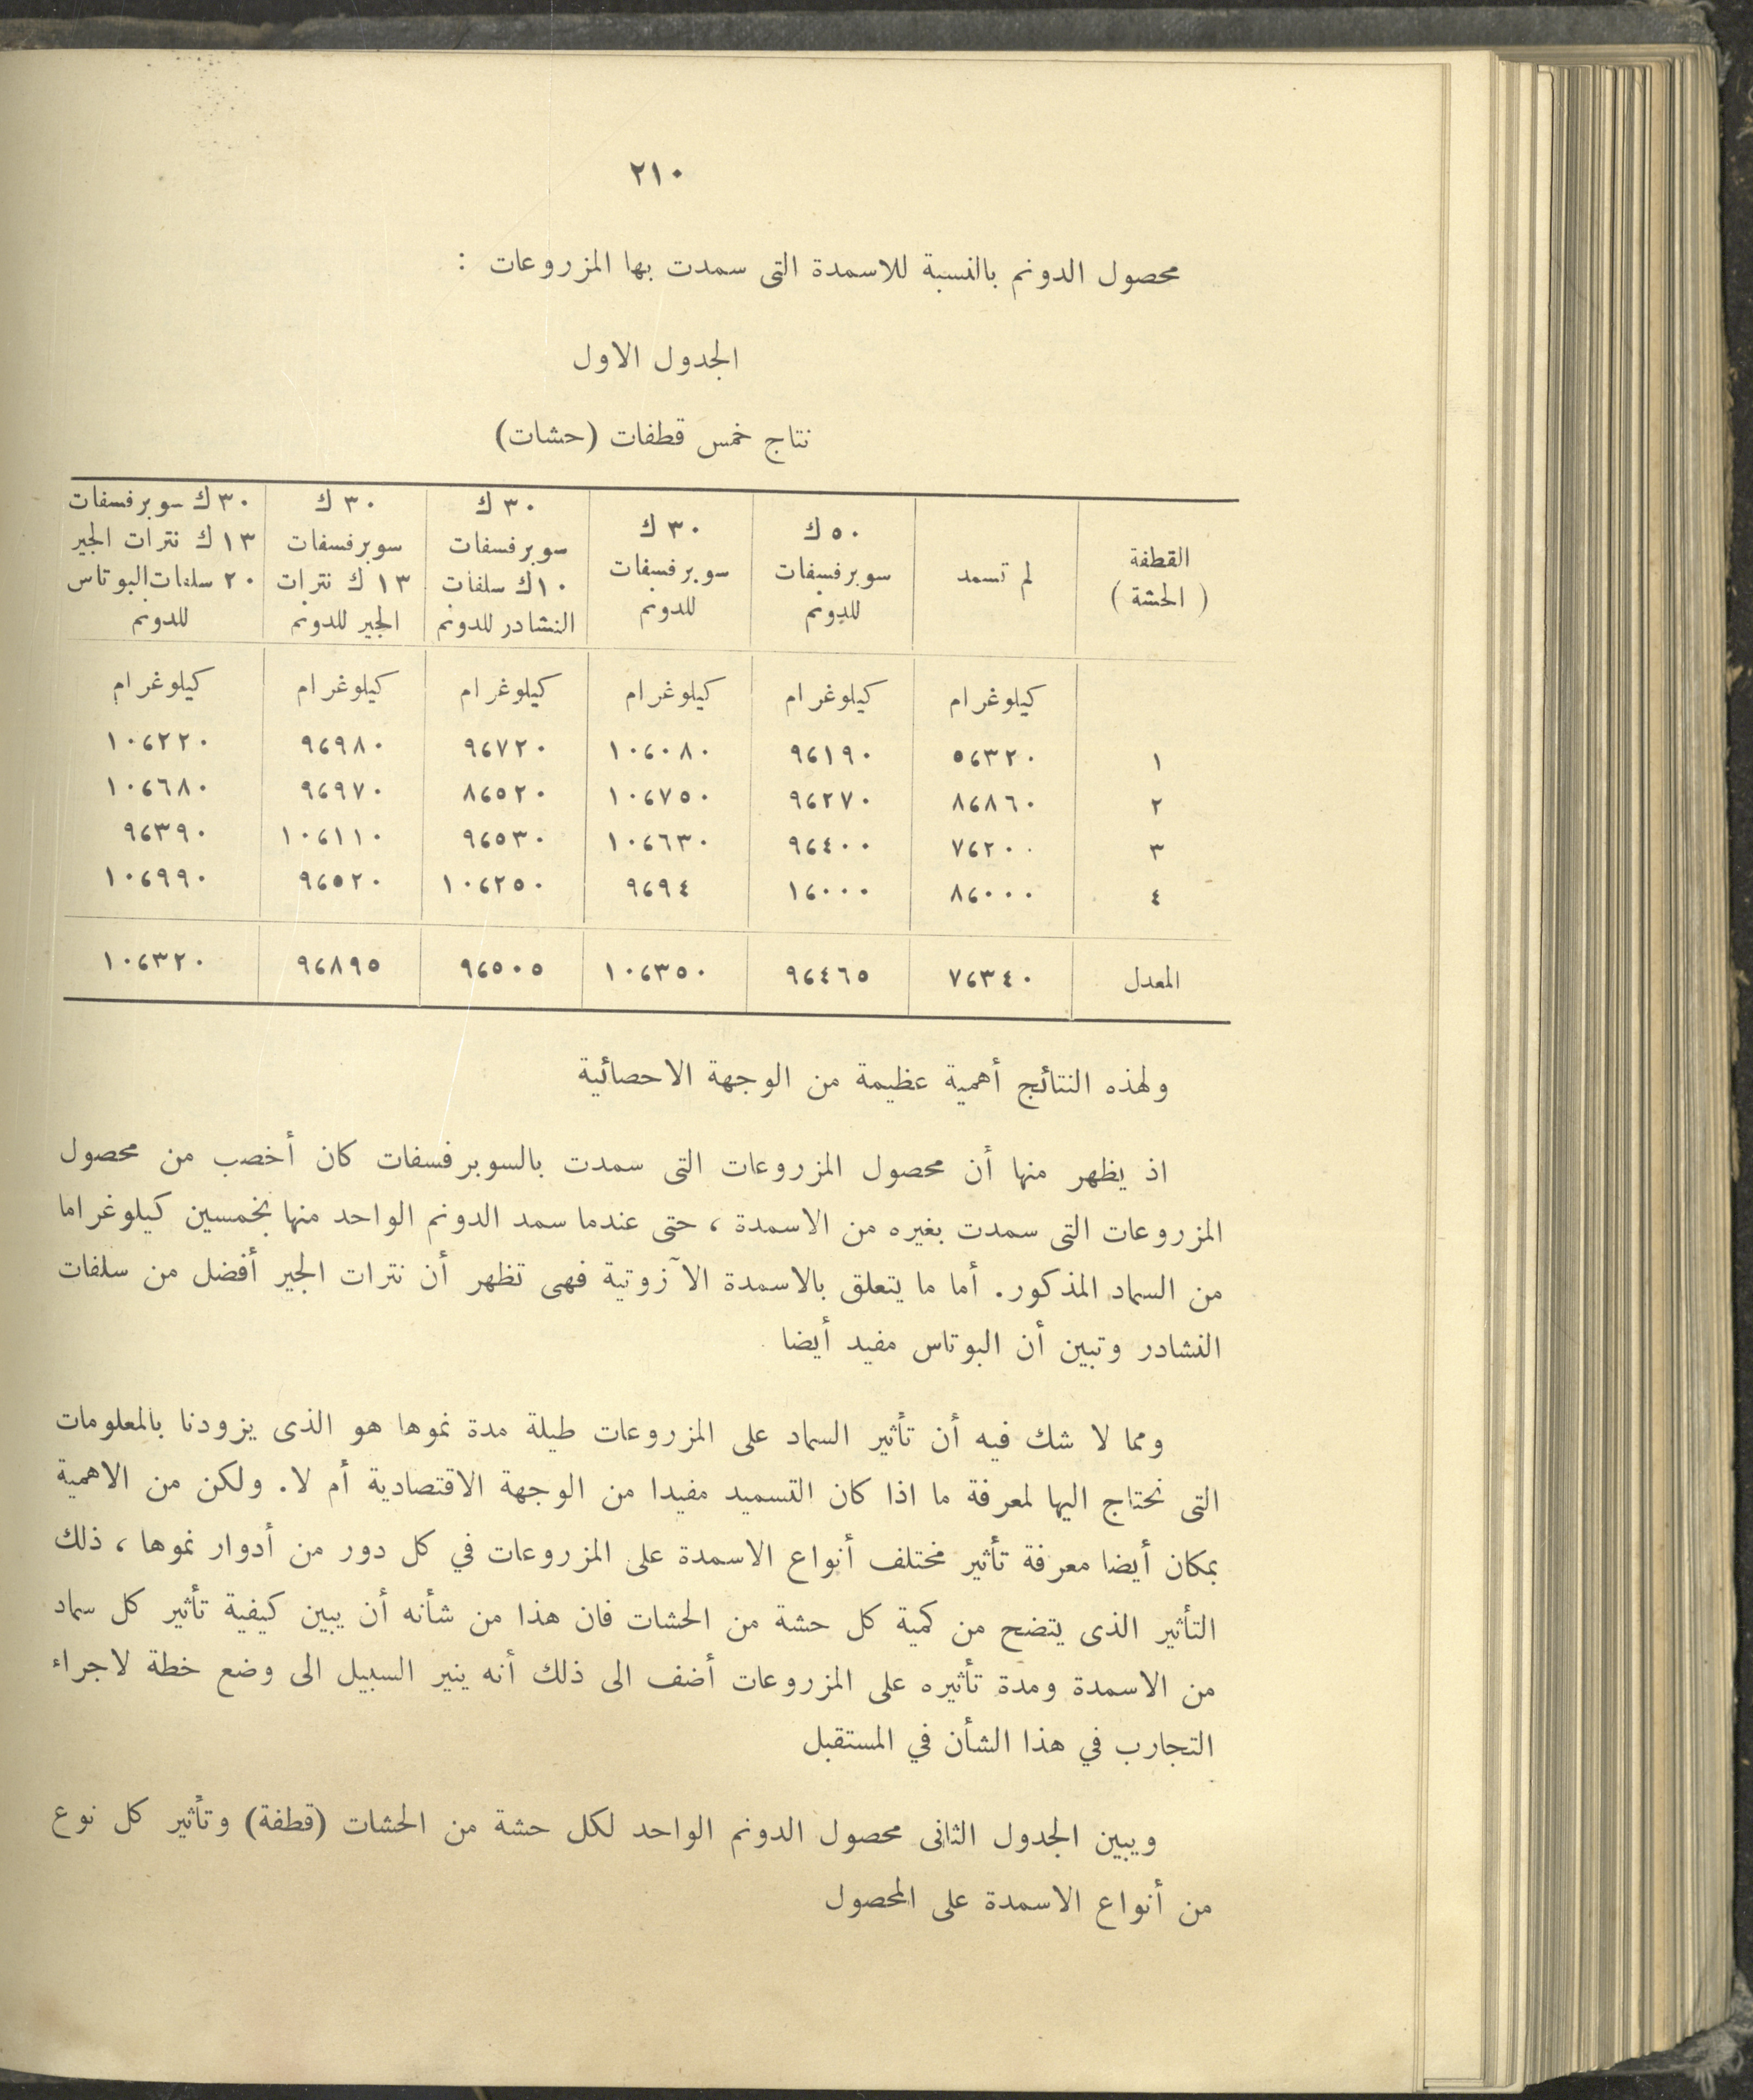 ٢١٠
محصول الدونم بالنسبة للاسمدة التى سمدت بها المزروعات :
الجدول الاول
نتاج خمس قطفات (حشات)
القطفة (الحشة) | لم تسمد | ٥٠ ك سوبرفسفات للدونم | ٣٠ ك سوبرفسفات للدونم | ٣٠ ك سوبرفسفات ١٠ ك سلفات النشادر للدونم | ٣٠ ك سوبرفسفات ١٣ ك نترات الجير للدونم | ٣٠ ك سوبرفسفات ١٣ ك نترات الجير ٢٠ سلفات البوتاس للدونم
كيلوغرام | كيلوغرام | كيلوغرام | كيلوغرام | كيلوغرام | كيلوغرام
١ | ٥،٣٢٠ | ٩،١٩٠ | ١٠،٠٨٠ | ٩،٧٢٠ | ٩،٩٨٠ | ١٠،٢٢٠
٢ | ٨،٨٦٠ | ٩،٢٧٠ | ١٠،٧٥٠ | ٨،٥٢٠ | ٩،٩٧٠ | ١٠،٦٨٠
٣ | ٧،٢٠٠ | ٩،٤٠٠ | ١٠،٦٣٠ | ٩،٥٣٠ | ١٠،١١٠ | ٩،٣٩٠
٤ | ٨،٠٠٠ | ١،٠٠٠ | ٩،٩٤ | ١٠،٢٥٠ | ٩،٥٢٠ | ١٠،٩٩٠
المعدل | ٧،٣٤٠ | ٩،٤٦٥ | ١٠،٣٥٠ | ٩،٥٠٥ | ٩،٨٩٥ | ١٠،٣٢٠
ولهذه النتائج أهمية عظيمة من الوجهة الاحصائية
اذ يظهر منها أن محصول المزروعات التى سمدت بالسوبرفسفات كان أخصب من محصول
المزروعات التى سمدت بغيره من الاسمدة ، حتى عندما سمد الدونم الواحد منها بخمسين كيلوغراما
من السماد المذكور. أما ما يتعلق بالاسمدة الآزوتية فهى تظهر أن نترات الجير أفضل من سلفات
النشادر وتبين أن البوتاس مفيد أيضا
ومما لا شك فيه أن تأثير السماد على المزروعات طيلة مدة نموها هو الذى يزودنا بالمعلومات
التى نحتاج اليها لمعرفة ما اذا كان التسميد مفيدا من الوجهة الاقتصادية أم لا. ولكن من الاهمية
بمكان أيضا معرفة تأثير مختلف أنواع الاسمدة على المزروعات في كل دور من أدوار نموها ، ذلك
التأثير الذى يتضح من كمية كل حشة من الحشات فان هذا من شأنه أن يبين كيفية تأثير كل سماد
من الاسمدة ومدة تأثيره على المزروعات أضف الى ذلك أنه ينير السبيل الى وضع خطة لاجراء
التجارب في هذا الشأن في المستقبل
ويبين الجدول الثانى محصول الدونم الواحد لكل حشة من الحشات (قطفة) وتأثير كل نوع
من أنواع الاسمدة على المحصول